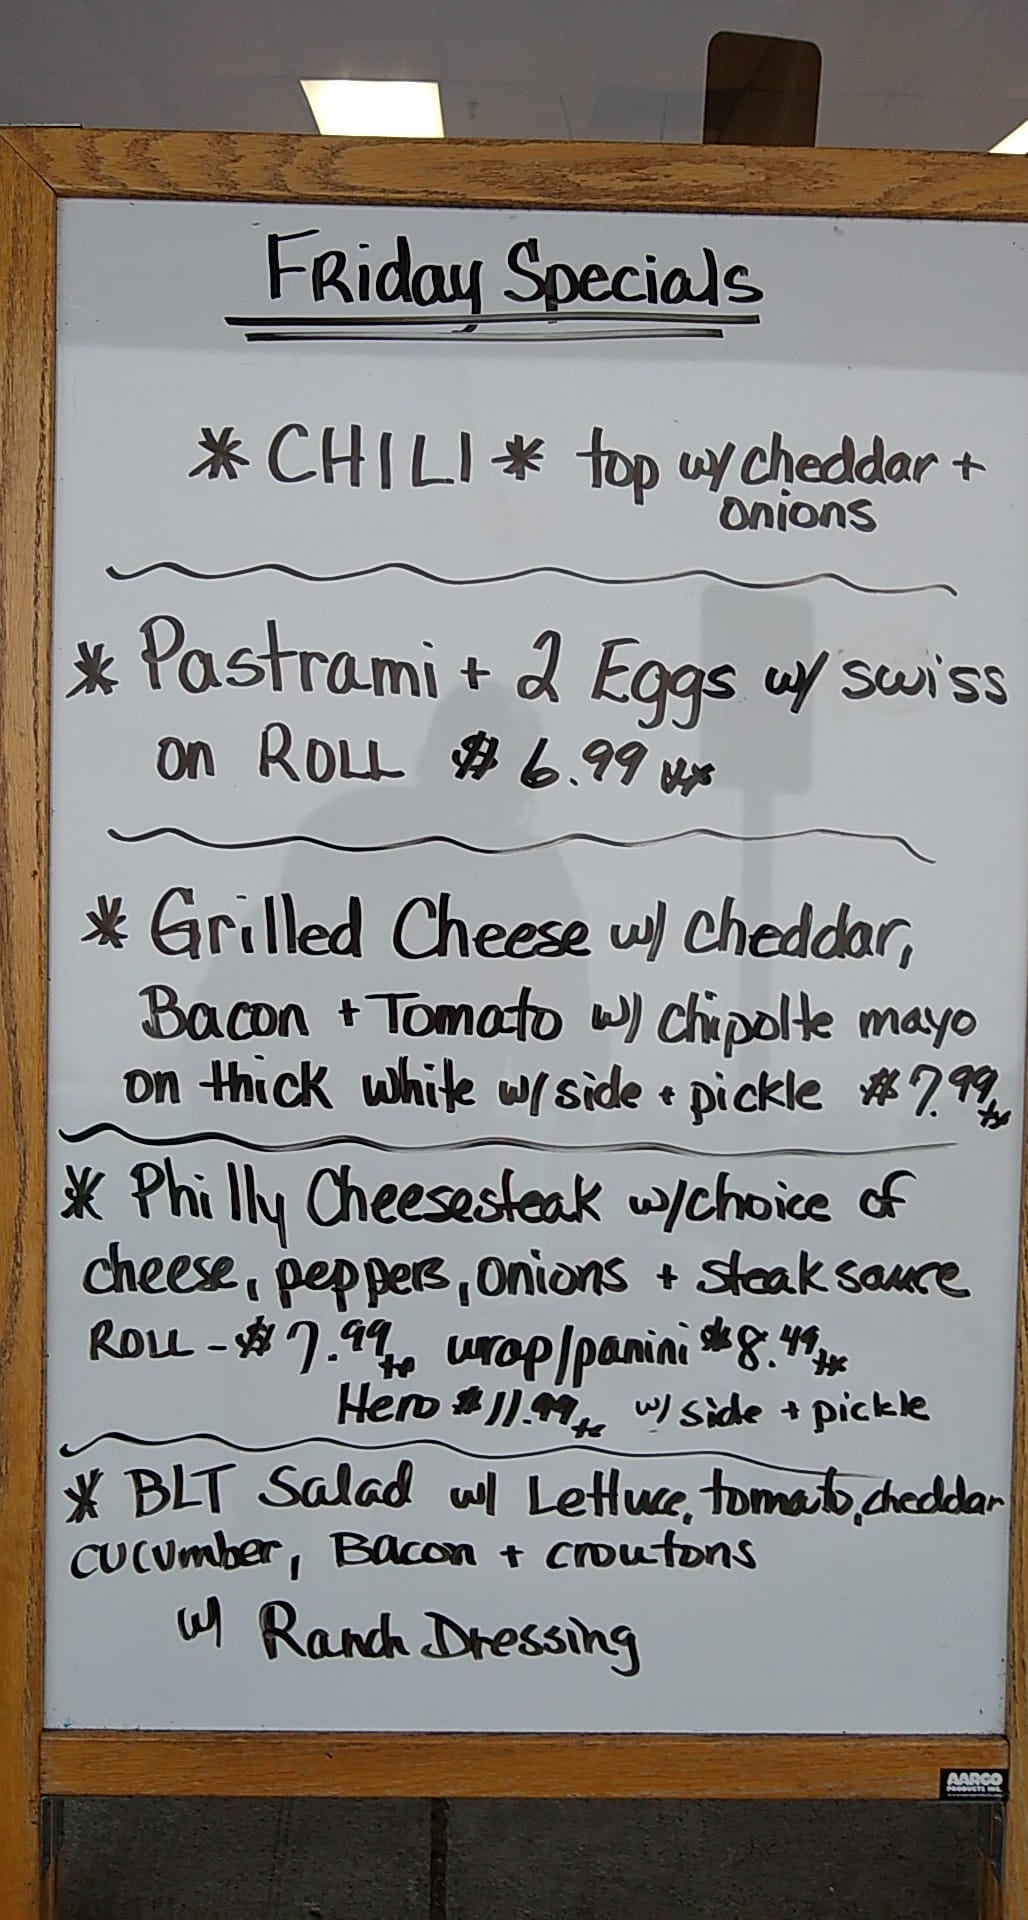 FRiday Specials
* CHILI * top w/ cheddar +
onions
* Pastrami + 2 Eggs w/ swiss
on ROLL $ 6.99 tx
* Grilled Cheese w/ cheddar,
Bacon + Tomato w/ chipolte mayo
on thick white w/ side + pickle $7.99 tx
* Philly Cheesesteak w/choice of
cheese, peppers, onions + steak sauce
ROLL - $7.99 tx wrap/panini $8.49 tx
Hero $11.99 tx w/ side + pickle
* BLT Salad w/ Lettuce, tomato, cheddar
cucumber, Bacon + croutons
w/ Ranch Dressing
AARCO
PRODUCTS INC.